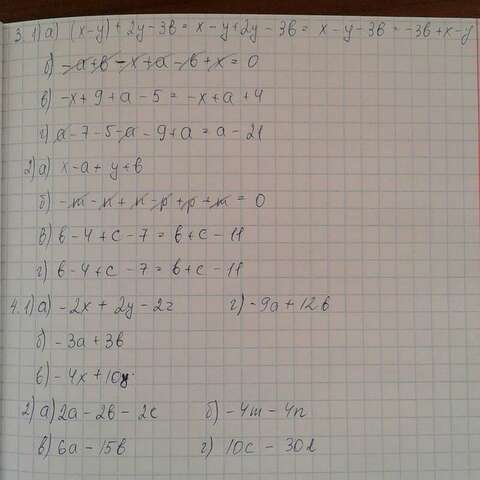 3. 1) а) (x-y) + 2y - 3в = x - y + 2y - 3в = x - y - 3в = -3в + x - y
б) -а+в - x+а - в+x = 0
в) -x + 9 + а - 5 = -x + а + 4
г) а - 7 - 5 - а - 9 + а = а - 21
2) а) x - а + y + в
б) -m - n + n - p + p + m = 0
в) в - 4 + с - 7 = в + с - 11
г) в - 4 + с - 7 = в + с - 11
4. 1) а) -2x + 2y - 2z г) -9а + 12в
б) -3а + 3в
в) -4x + 10y
2) а) 2а - 2в - 2с б) -4m - 4n
в) 6а - 15в г) 10с - 30d